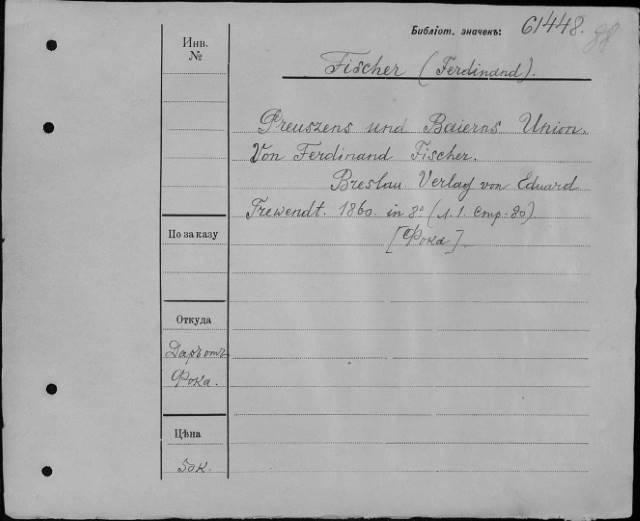 Библіот. значекъ: 61448.
Инв.
№
Fischer (Ferdinand).
Preuszens und Baierns Union.
Von Ferdinand Fischer.
Breslau Verlag von Eduard
Trewendt. 1860. in 8º (л. 1. стр. 80).
[Фока].
По заказу
Откуда
Даръ отъ
Фока.
Цѣна
50 к.